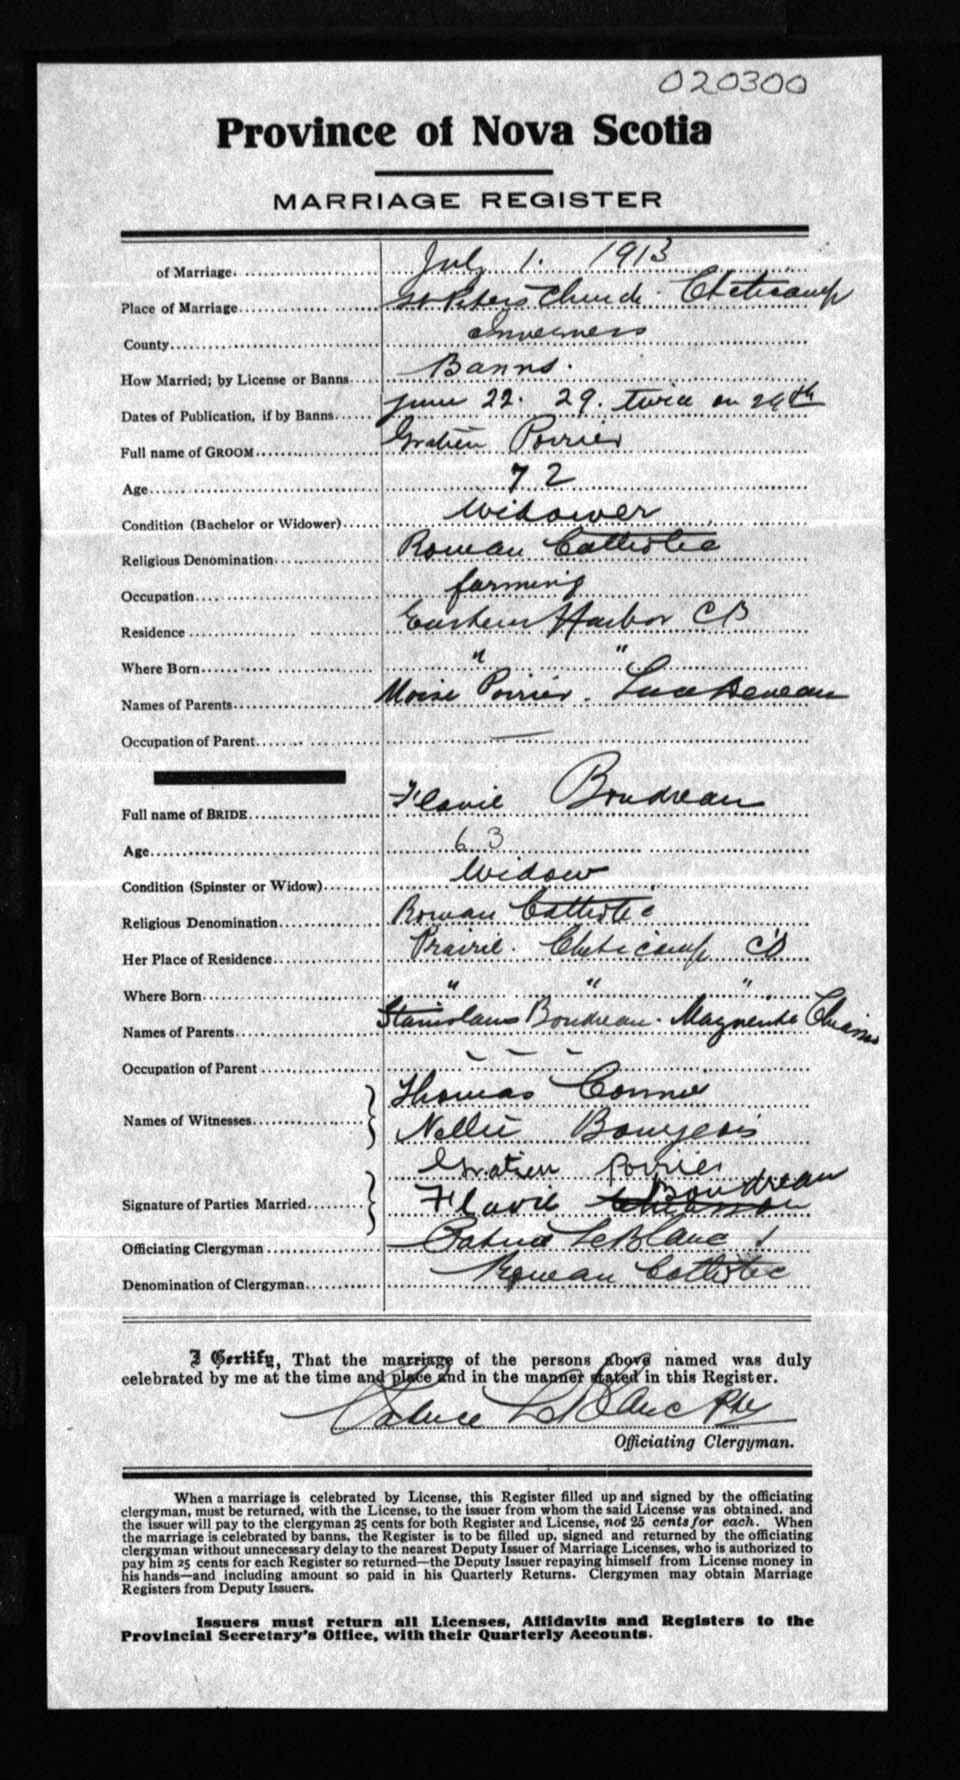 020300
Province of Nova Scotia
MARRIAGE REGISTER
of Marriage. July 1. 1913
Place of Marriage St Peters Church. Cheticamp
County Inverness
How Married; by License or Banns Banns.
Dates of Publication, if by Banns June 22. 29. twice on 29th
Full name of GROOM Gratien Poirier
Age 72
Condition (Bachelor or Widower) Widower
Religious Denomination Roman Catholic
Occupation farming
Residence Eastern Harbor CB
Where Born " "
Names of Parents Moise Poirier. Luce Deveau
Occupation of Parent —
Full name of BRIDE Flavie Boudreau
Age 63
Condition (Spinster or Widow) Widow
Religious Denomination Roman Catholic
Her Place of Residence Prairie. Cheticamp CB
Where Born " " "
Names of Parents Stanislaus Boudreau. Chiasson
Occupation of Parent - - -
Names of Witnesses Thomas
Nellie Bourgeois
Gratien Poirier
Signature of Parties Married Flavie Chiasson Boudreau
Officiating Clergyman LeBlanc
Denomination of Clergyman Roman Catholic
I Certify, That the marriage of the persons above named was duly
celebrated by me at the time and place and in the manner stated in this Register.
LeBlanc
Officiating Clergyman.
When a marriage is celebrated by License, this Register filled up and signed by the officiating
clergyman, must be returned, with the License, to the issuer from whom the said License was obtained, and
the issuer will pay to the clergyman 25 cents for both Register and License, not 25 cents for each. When
the marriage is celebrated by banns, the Register is to be filled up, signed and returned by the officiating
clergyman without unnecessary delay to the nearest Deputy Issuer of Marriage Licenses, who is authorized to
pay him 25 cents for each Register so returned—the Deputy Issuer repaying himself from License money in
his hands—and including amount so paid in his Quarterly Returns. Clergymen may obtain Marriage
Registers from Deputy Issuers.
Issuers must return all Licenses, Affidavits and Registers to the
Provincial Secretary's Office, with their Quarterly Accounts.